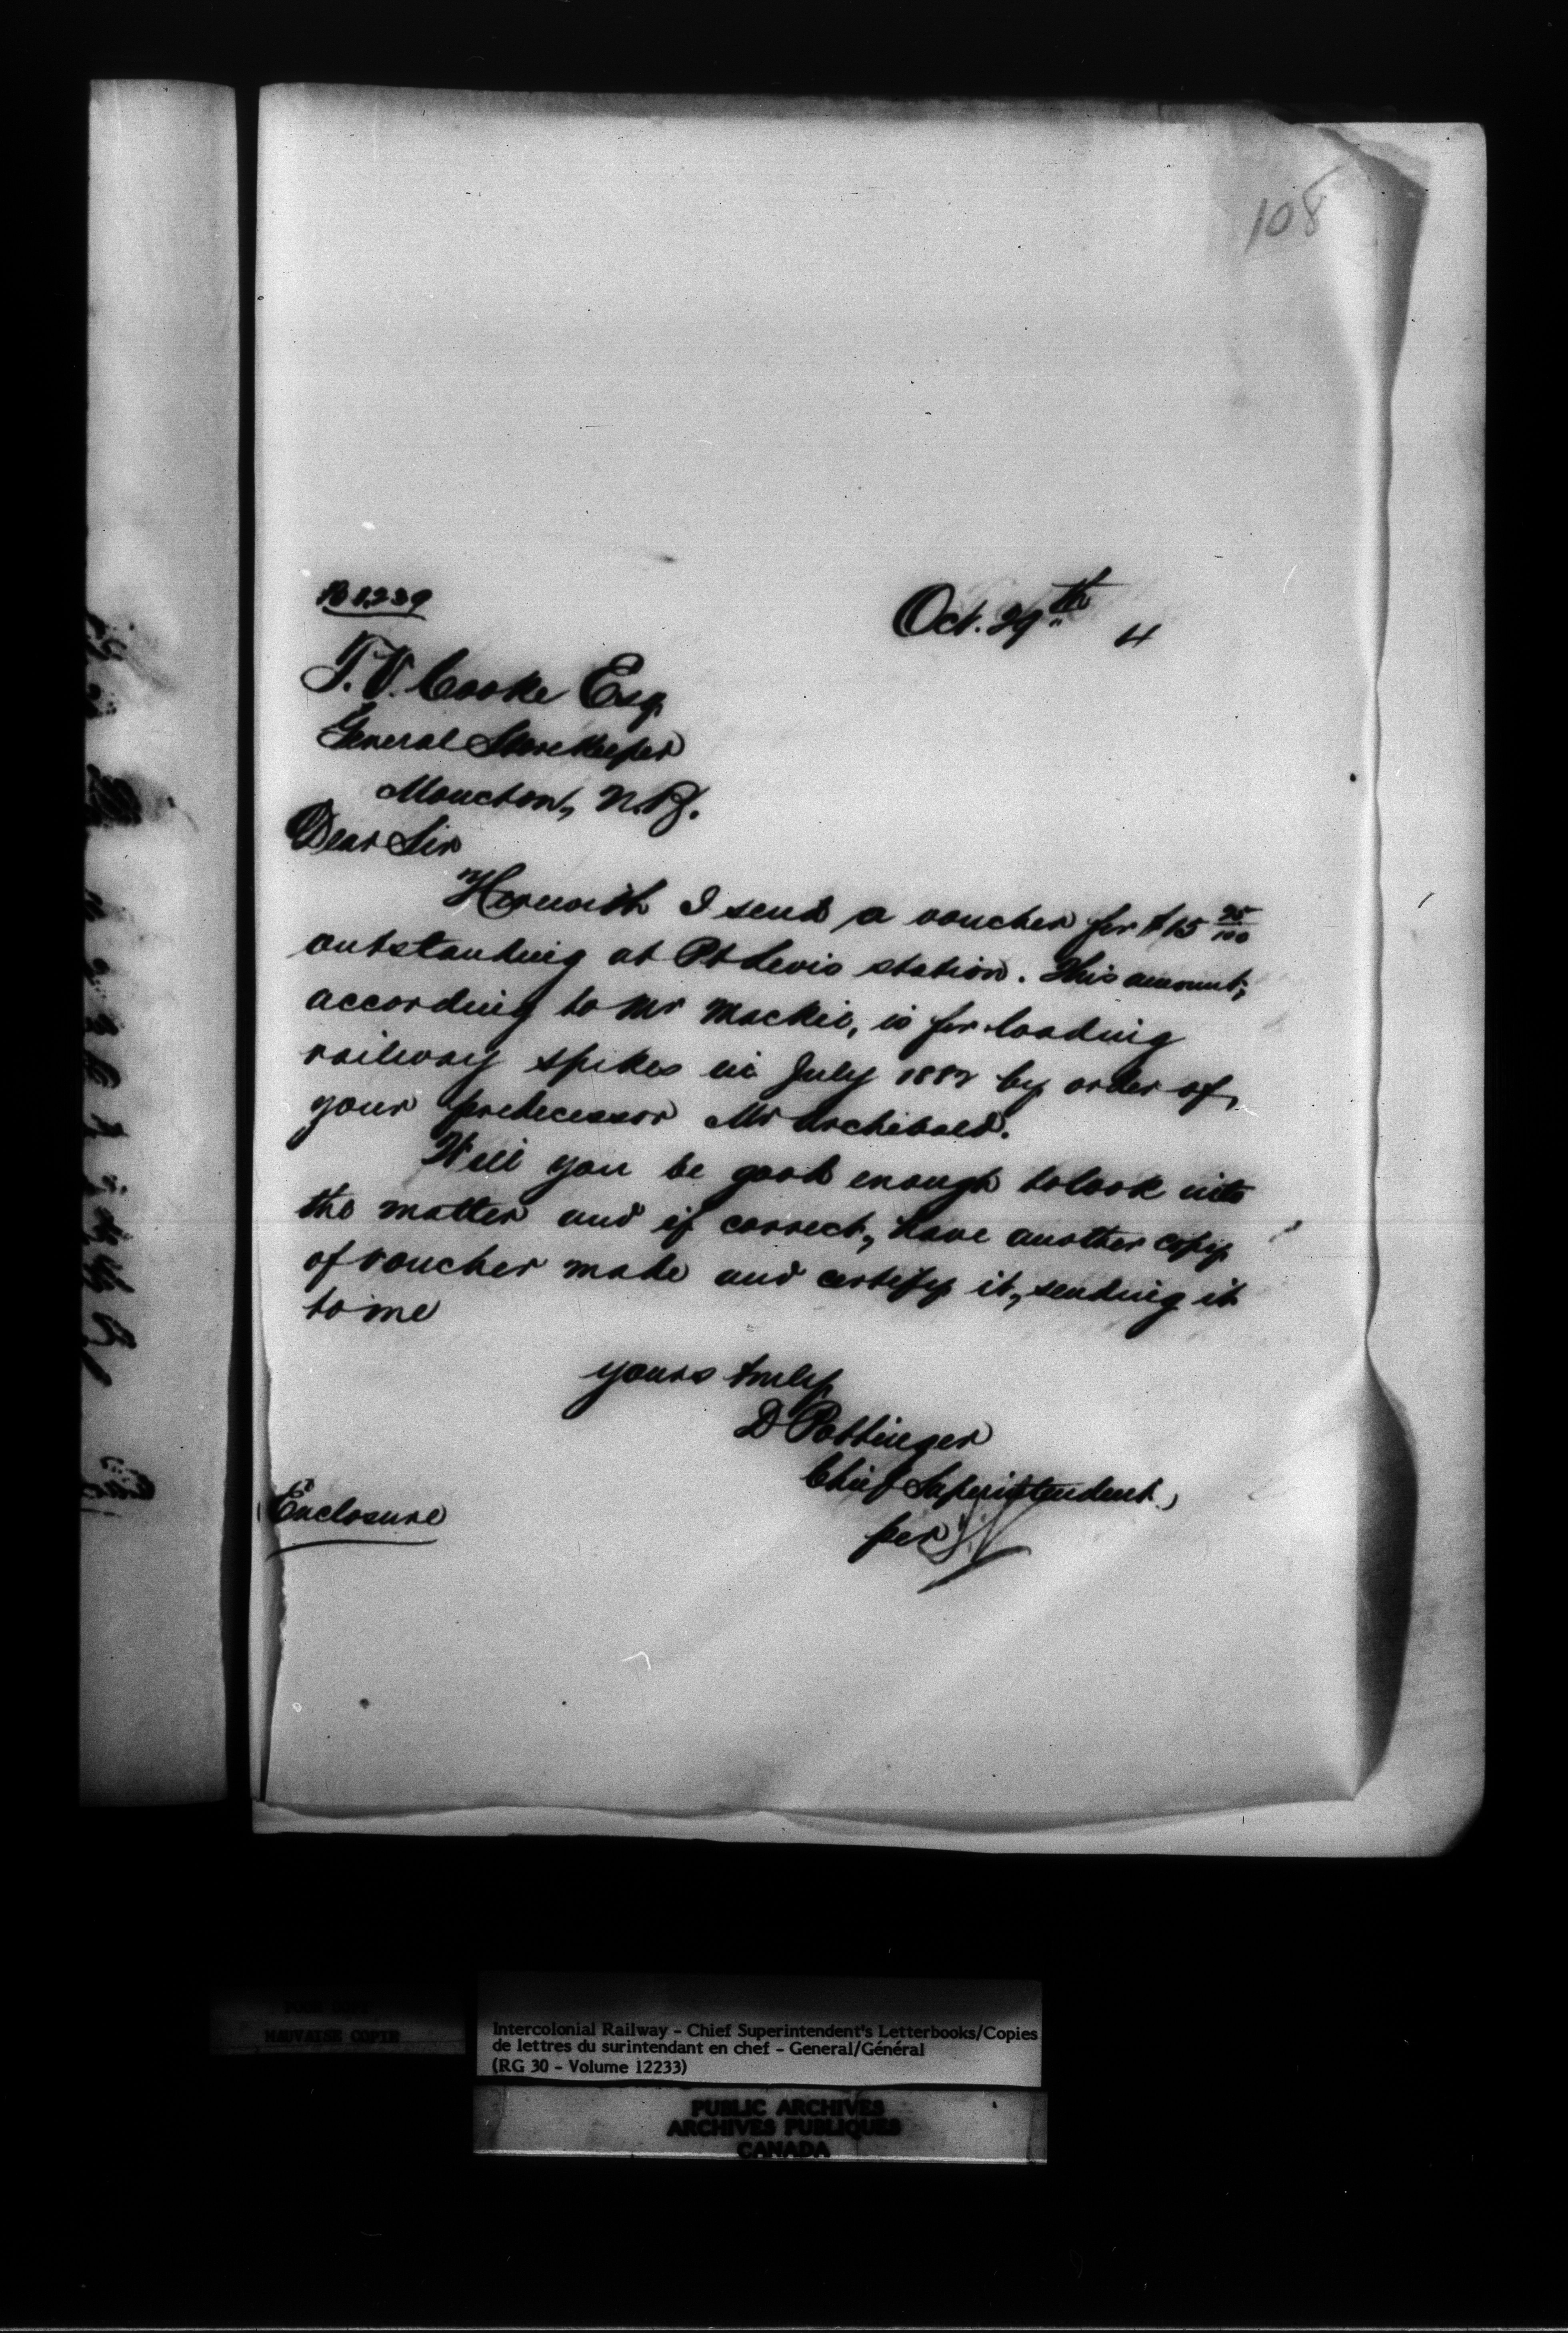 108
B 1,239
Oct. 29th 4
T. V. Cooke Esq.
General Storekeeper
Moncton, N.B.
Dear Sir
Herewith I send a voucher for $15 25/100
outstanding at Pt Levis station. This amount,
according to Mr Mackie, is for loading
railway spikes in July 1882 by order of,
your predecessor Mr Archibald.
Will you be good enough to look into
the matter and if correct, have another copy
of voucher made and certify it, sending it
to me
yours truly
D Pottinger
Chief Superintendent
per
Enclosure
MAUVAISE COPIE
Intercolonial Railway - Chief Superintendent's Letterbooks/Copies
de lettres du surintendant en chef - General/Général
(RG 30 - Volume 12233)
PUBLIC ARCHIVES
ARCHIVES PUBLIQUES
CANADA